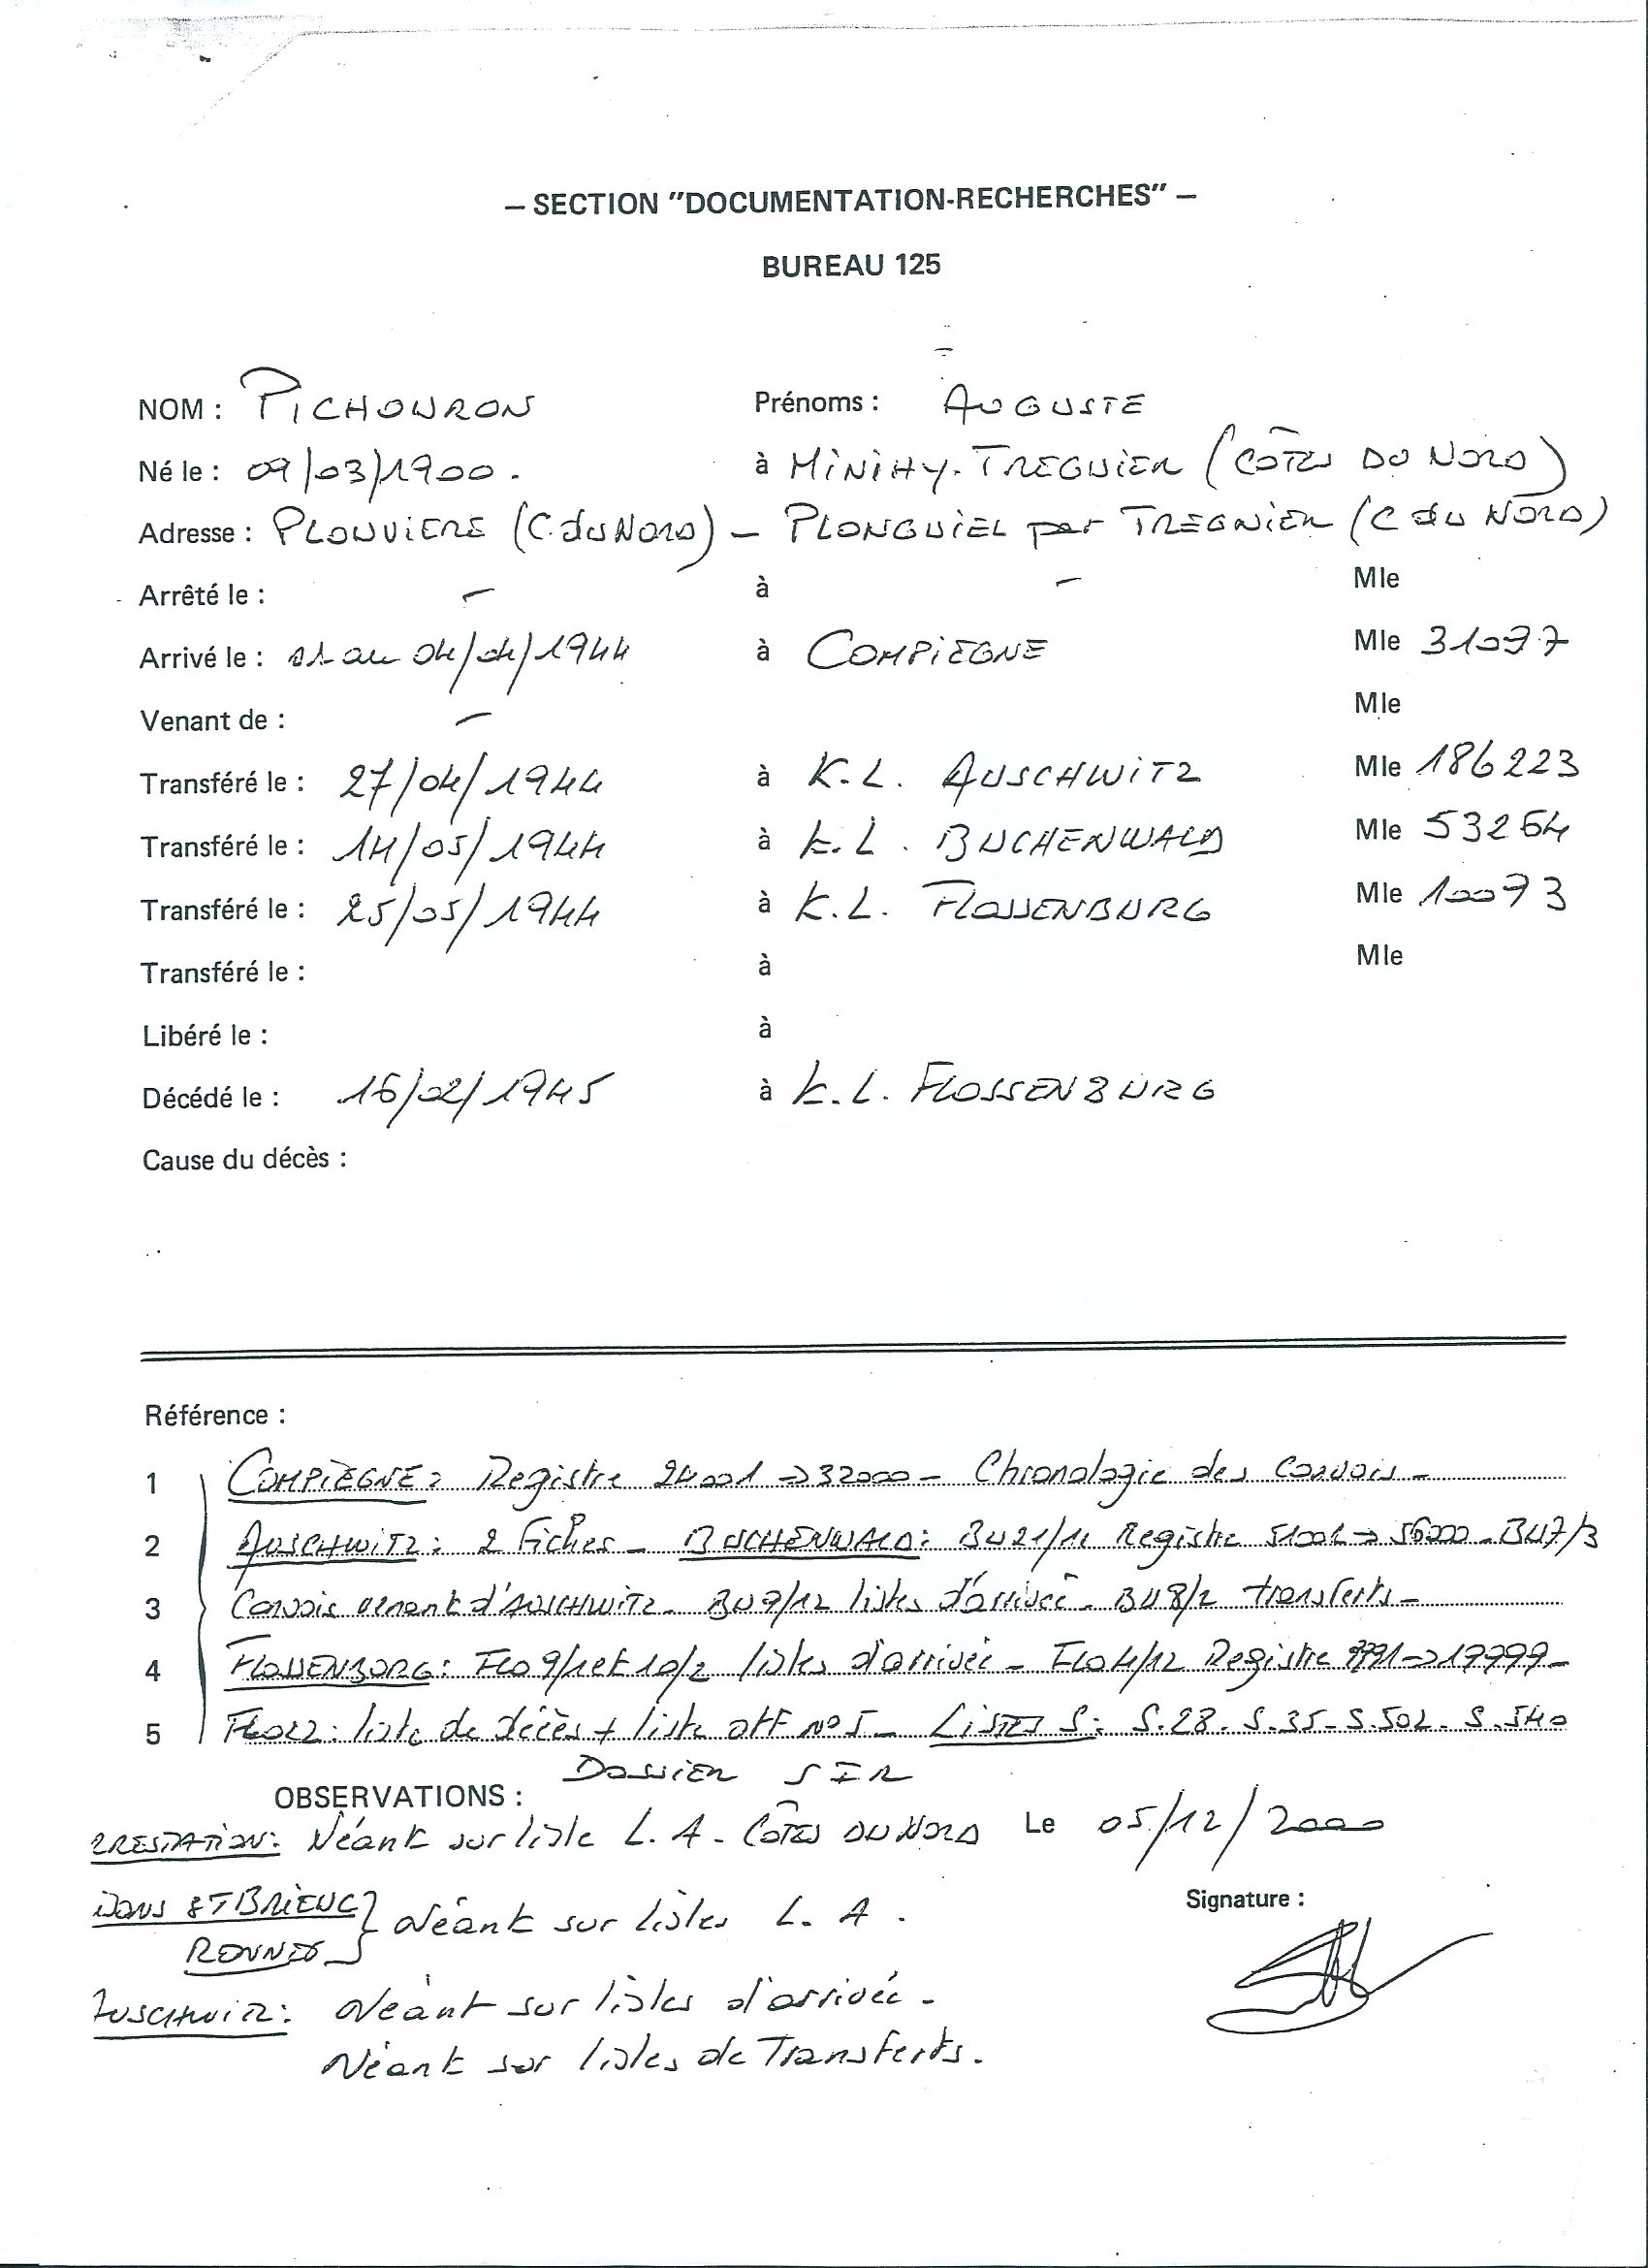 – SECTION "DOCUMENTATION-RECHERCHES" –
BUREAU 125
NOM : PICHOURON Prénoms : AUGUSTE
Né le : 09/03/1900. à MINIHY-TREGUIER (CÔTES DU NORD)
Adresse : PLOUVIERE (C. du NORD) – PLONGUIEL par TREGNIER (C du NORD)
Arrêté le : – à – Mle
Arrivé le : 01 au 04/04/1944 à COMPIEGNE Mle 31097
Venant de : – Mle
Transféré le : 27/04/1944 à K.L. AUSCHWITZ Mle 186223
Transféré le : 14/05/1944 à K.L. BUCHENWALD Mle 53264
Transféré le : 25/05/1944 à K.L. FLOSSENBURG Mle 10073
Transféré le : à Mle
Libéré le : à
Décédé le : 16/02/1945 à K.L. FLOSSENBURG
Cause du décès :
Référence :
1 COMPIÈGNE: Registre 24001 → 32000 – Chronologie des Convois –
2 AUSCHWITZ: 2 Fiches – BUCHENWALD: BU 21/11 Registre 51001 → 56000 – BU 7/3
3 Convois venant d'AUSCHWITZ – BU 9/12 listes d'arrivée – BU 8/2 transferts –
4 FLOSSENBURG: FLO 9/1 et 10/2 listes d'arrivée – FLO 4/12 Registre 9991 → 19999 –
5 liste de décès + liste off N° 5 – LISTES S: S.28. S.35 – S.502. S.540
Dossier SIR
OBSERVATIONS :
ARRESTATION: Néant sur liste L.A – CÔTES DU NORD Le 05/12/2000
Dans ST BRIEUC } Néant sur listes L.A.
RENNES Signature :
AUSCHWITZ: Néant sur listes d'arrivée –
Néant sur listes de Transferts.